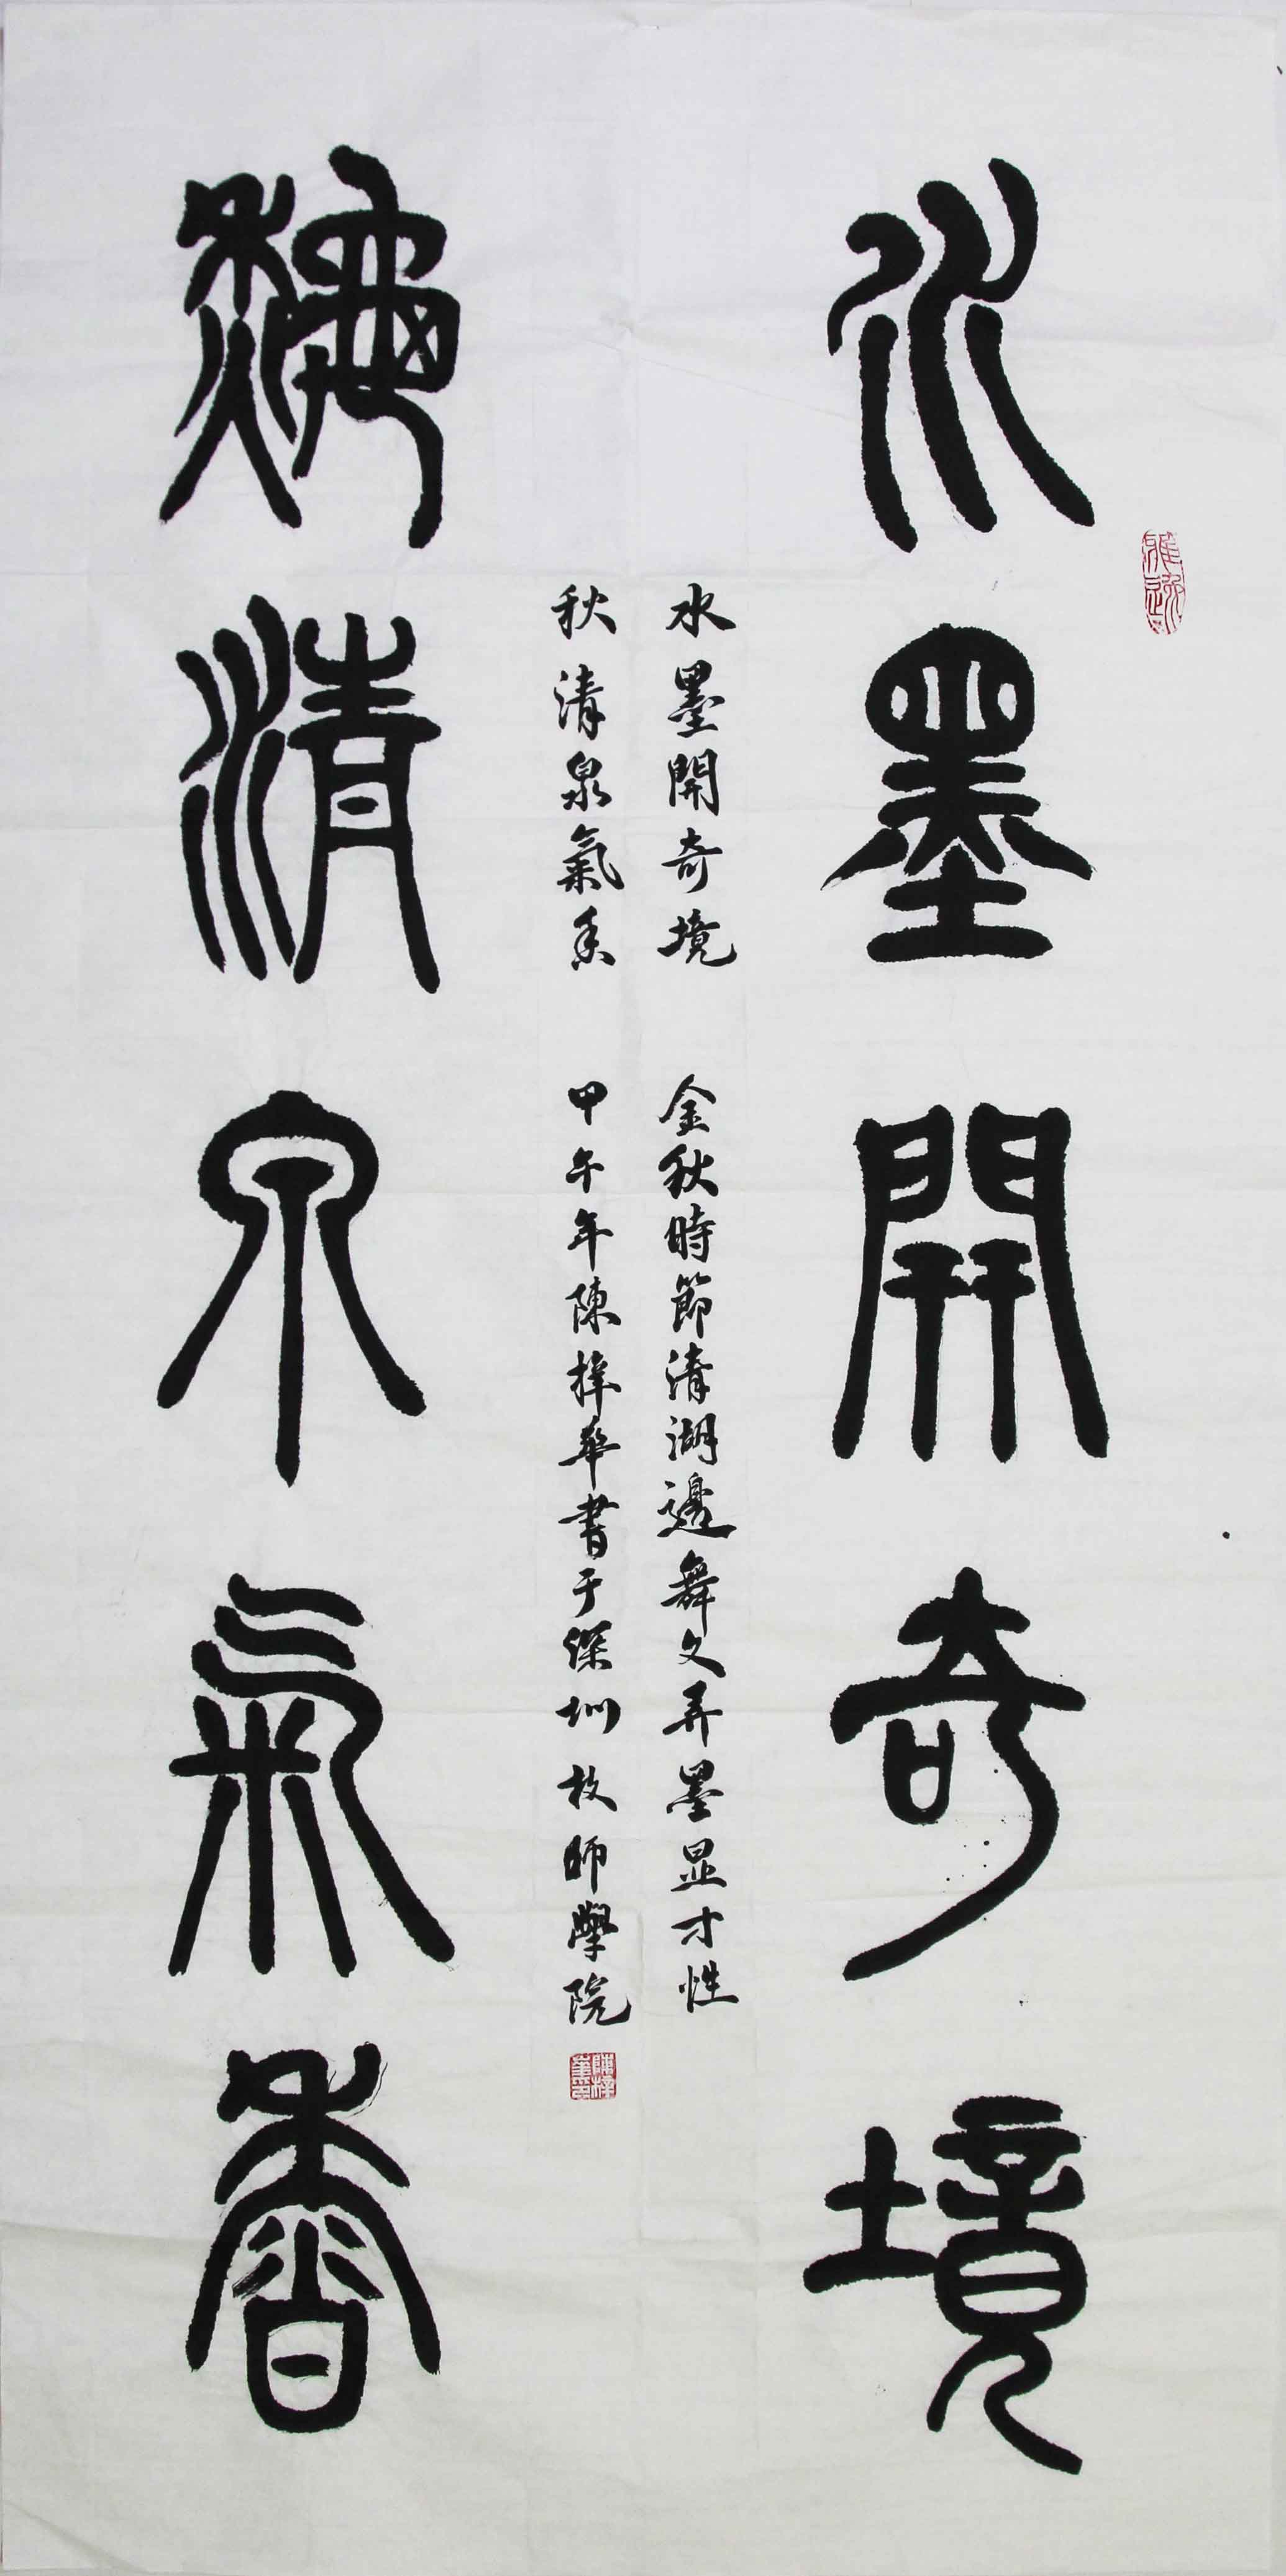 水墨開奇境
水墨開奇境 金秋時節清湖邊舞文弄墨显才性
秋清泉氣香 甲午年陳梓華書于深圳技師學院
龝清泉氣香